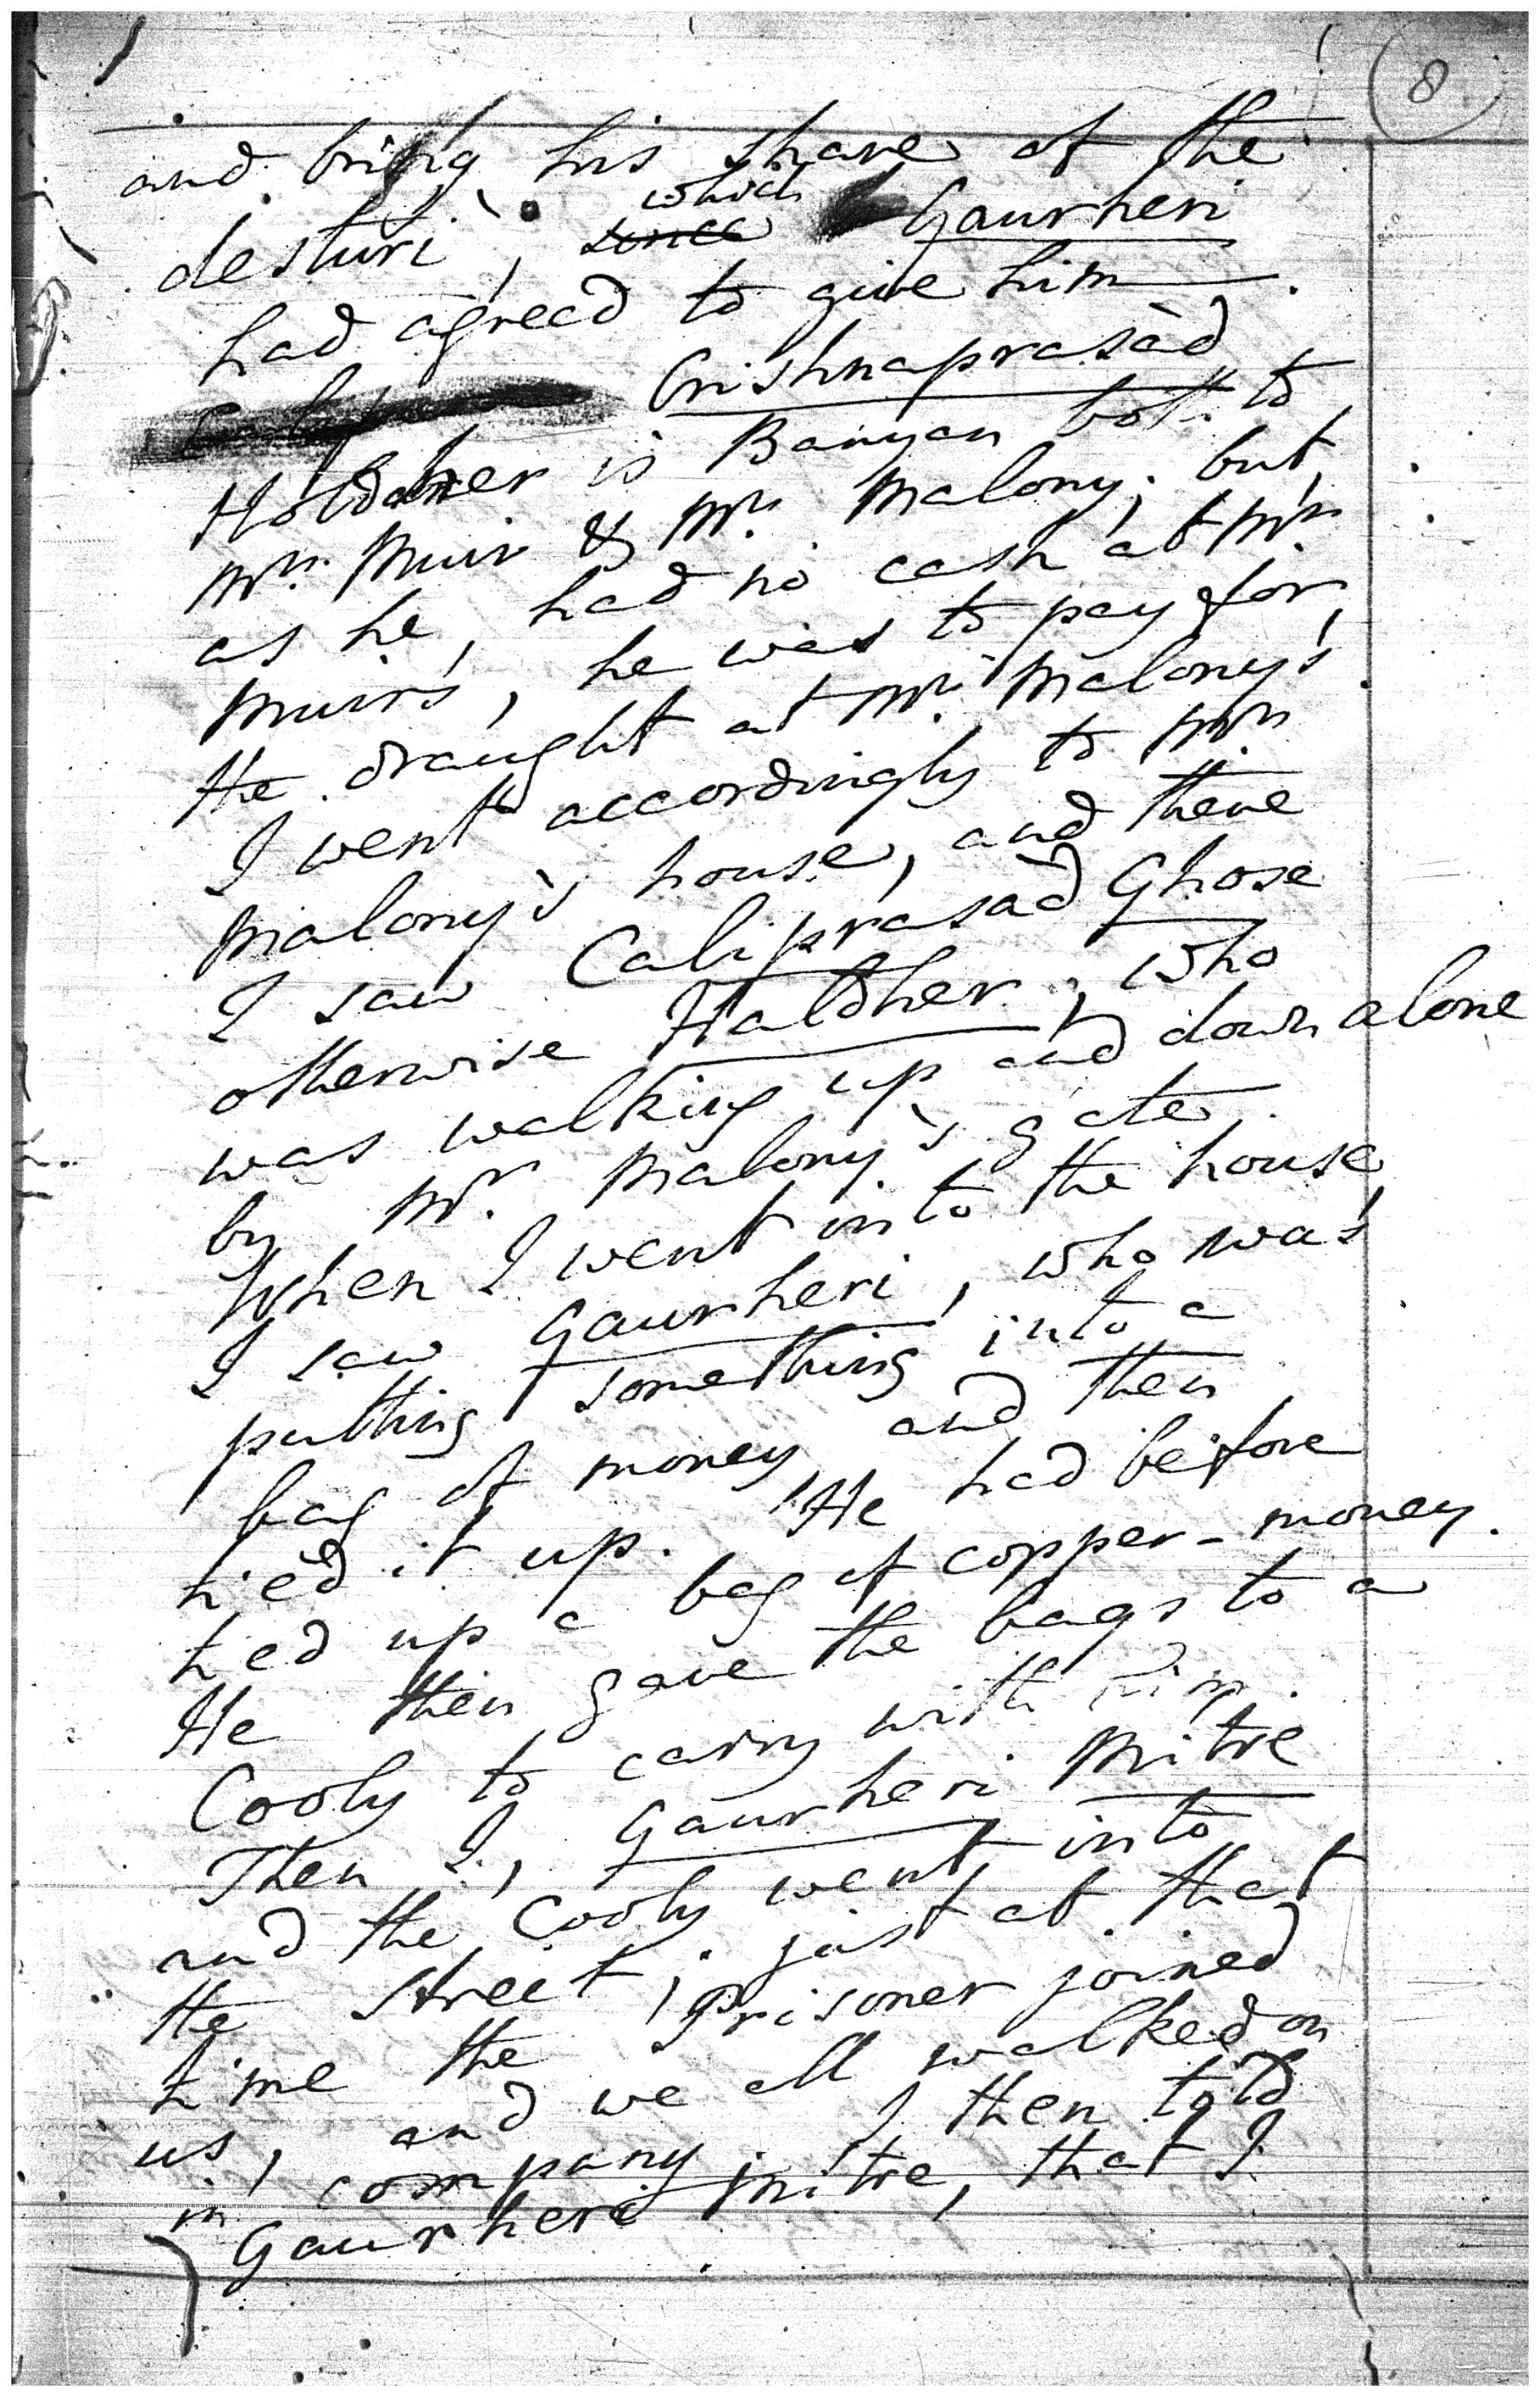 8
and bring his share of the
desturi, ~~since~~ which Gaurheri
had agreed to give him.
Crishnaprasàd
Holdher is Banyan both to
Mr. Muir & Mr. Malony; but,
as he, had no cash at Mr.
Muir's, he was to pay for
the draught at Mr. Malony's.
I went accordingly to Mr.
Malony's house, and there
I saw Caliprasàd Ghose
otherwise Haldher, who
was walking up and down alone
by Mr. Malony's gate.
When I went into the house,
I saw Gaurheri, who was
putting something into a
bag of money and then
tied it up. He had before
tied up a bag of copper-money.
He then gave the bags to a
Cooly to carry with him.
Then I, Gaurheri Mitre
and the Cooly went into
the street; just at that
time the prisoner joined
us, and we all walked on
in company. I then told
Gaurheri Mitre, that I